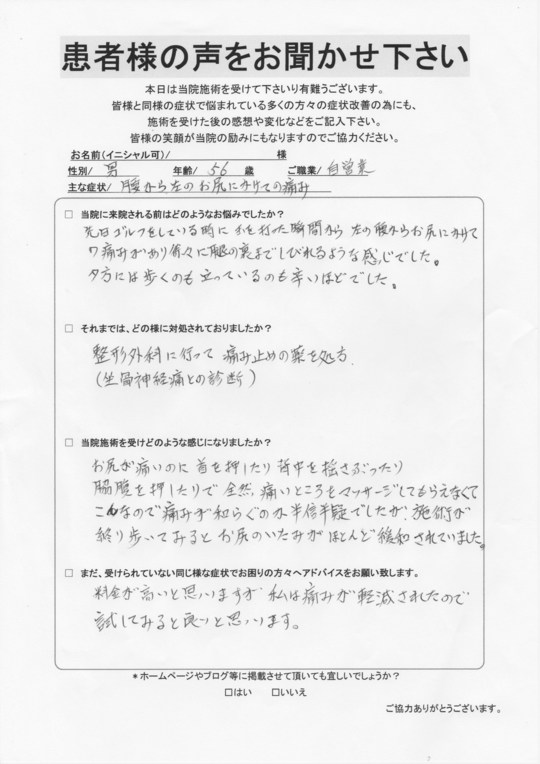 患者様の声をお聞かせ下さい
本日は当院施術を受けて下さいり有難うございます。
皆様と同様の症状で悩まれている多くの方々の症状改善の為にも、
施術を受けた後の感想や変化などをご記入下さい。
皆様の笑顔が当院の励みにもなりますのでご協力ください。
お名前(イニシャル可)/ 様
性別/ 男 年齢/ 56 歳 ご職業/ 自営業
主な症状/ 腰から左のお尻にかけての痛み
□ 当院に来院される前はどのようなお悩みでしたか?
先日ゴルフをしている時に 打った瞬間から 左の腰からお尻にかけて
痛みがあり徐々に腿の裏までしびれるような感じでした。
夕方には歩くのも立っているのも辛いほどでした。
□ それまでは、どの様に対処されておりましたか?
整形外科に行って 痛み止めの薬を処方.
(坐骨神経痛との診断)
□ 当院施術を受けどのような感じになりましたか?
お尻が痛いのに 首を押したり 背中を揺さぶったり
脇腹を押したりで 全然、痛いところをマッサージしてもらえなくて
こんなので痛みが和らぐのか半信半疑でしたが、施術が
終り歩いてみると お尻のいたみが ほとんど緩和されていました。
□ まだ、受けられていない同じ様な症状でお困りの方々へアドバイスをお願い致します。
料金が高いと思いますが 私は痛みが軽減されたので
試してみると良いと思います。
*ホームページやブログ等に掲載させて頂いても宜しいでしょうか?
□はい □いいえ
ご協力ありがとうございます。